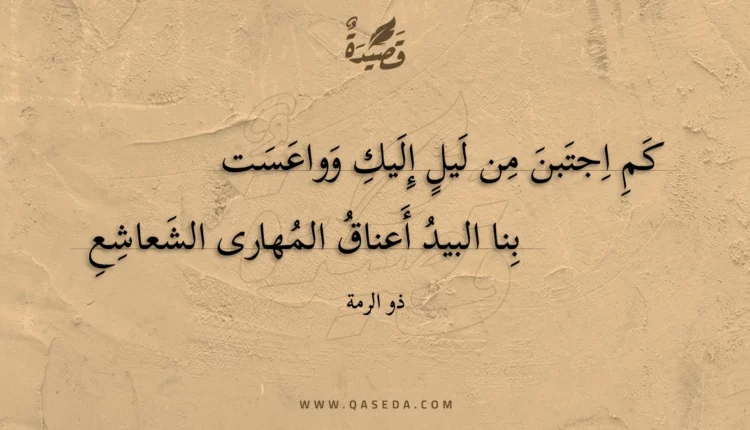 قَصِيدَةٌ
كَمِ اِجتَبنَ مِن لَيلٍ إِلَيكِ وَواعَسَت
بِنا البيدُ أَعناقُ المُهارى الشَعاشِعِ
ذو الرمة
WWW.QASEDA.COM